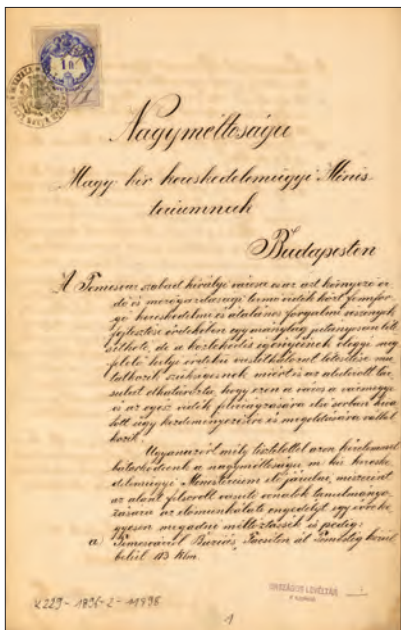 Nagyméltóságu
Magy. kir. kereskedelemügyi Minis-
teriumnak
Budapesten
A Temesvár szabad királyi városa és az azt környező er-
dő és mezőgazdasági termő vidék közt fennfor-
gó kereskedelmi és általános forgalmi viszonyok
fejlesztése érdekében
de a közlekedés igényeinek eleggé meg
felelő helyi érdekű vasúthálózat létesítése mu-
tatkozik szükségesnek, miért is az alulírott tár-
sulat elhatározta, hogy ezen a város a vármegye
és az egész vidék felvirágzására első sorban hiva-
tott ügy kezdeményezésére és megoldására vállal
kozik.
Ugyanazért mély tisztelettel azon kérelemmel
bátorkodunk a nagyméltóságu m. kir. keres-
kedelemügyi Ministerium elé járulni, miszerint
az alant felsorolt vasúti vonalok tanulmányo-
zására az előmunkálati engedélyt egy évre ke-
gyesen megadni méltóztassék és pedig:
a) Temesvárról Buziás, Facsăten át kerül
belül 113 klm.
K229-1896-2-11996
ORSZÁGOS LEVÉLTÁR
1